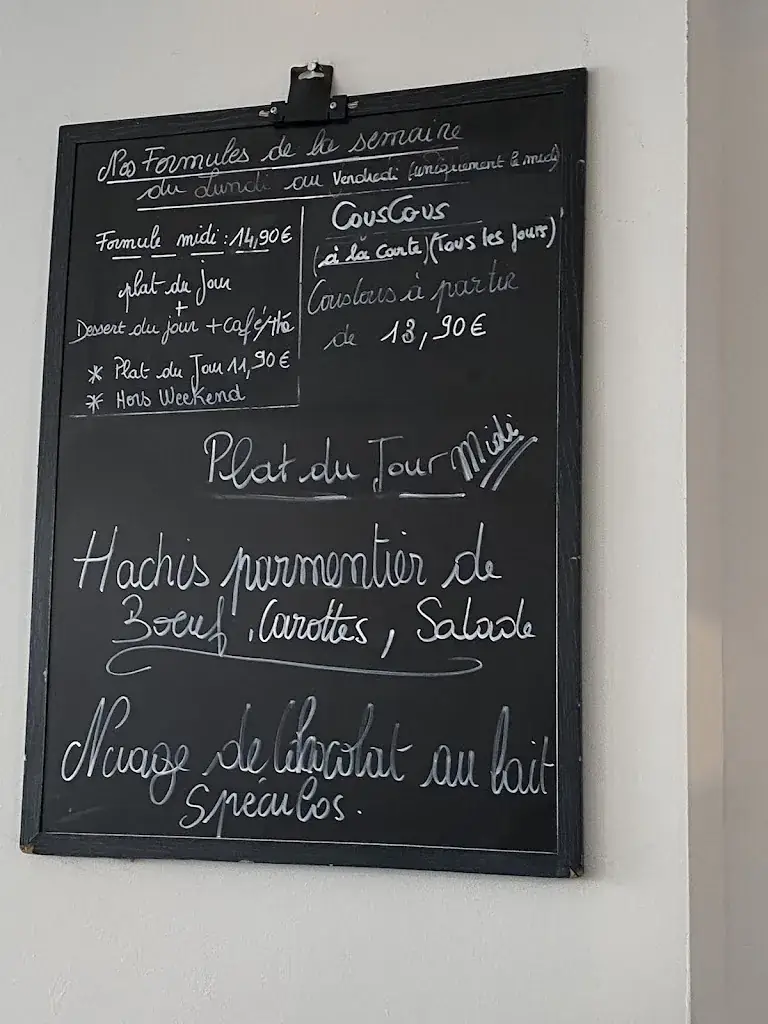 Nos Formules de la semaine
du Lundi au Vendredi (uniquement le midi)
Formule midi : 14,90€
plat du jour
+
Dessert du jour + café/thé
* Plat du Jour 11,90€
* Hors Weekend
CousCous
(à la Carte) (Tous les Jours)
CousCous à partir
de 13,90€
Plat du Jour Midi
Hachis parmentier de
Boeuf, Carottes, Salade
Nuage de Chocolat au lait
Spéculos.